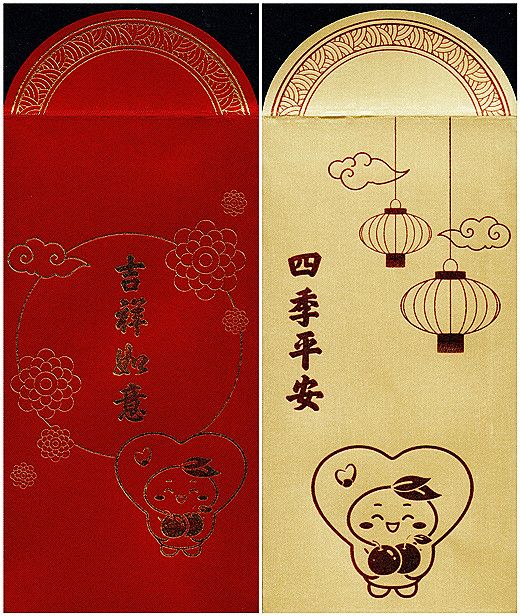 吉祥如意
四季平安